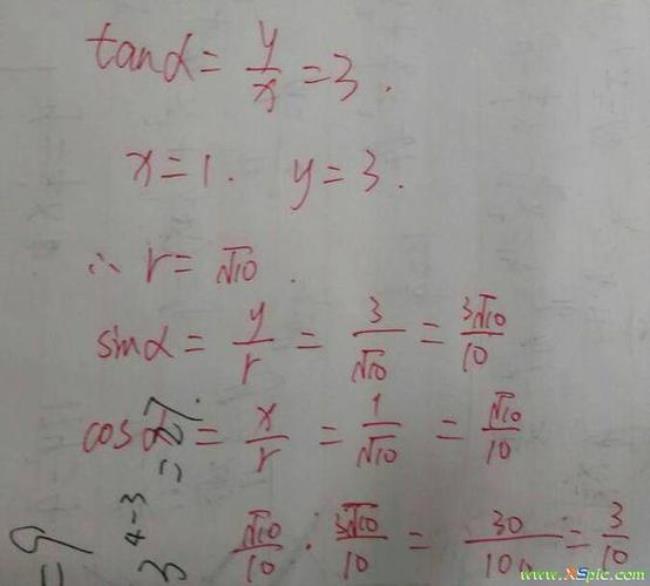 tanα = y/x = 3.
x = 1. y = 3.
∴ r = √10.
sinα = y/r = 3/√10 = 3√10/10
cosα = x/r = 1/√10 = √10/10
√10/10 · 3√10/10 = 30/100 = 3/10
3^{4-3} = 27.
= 9
www.XSpic.com